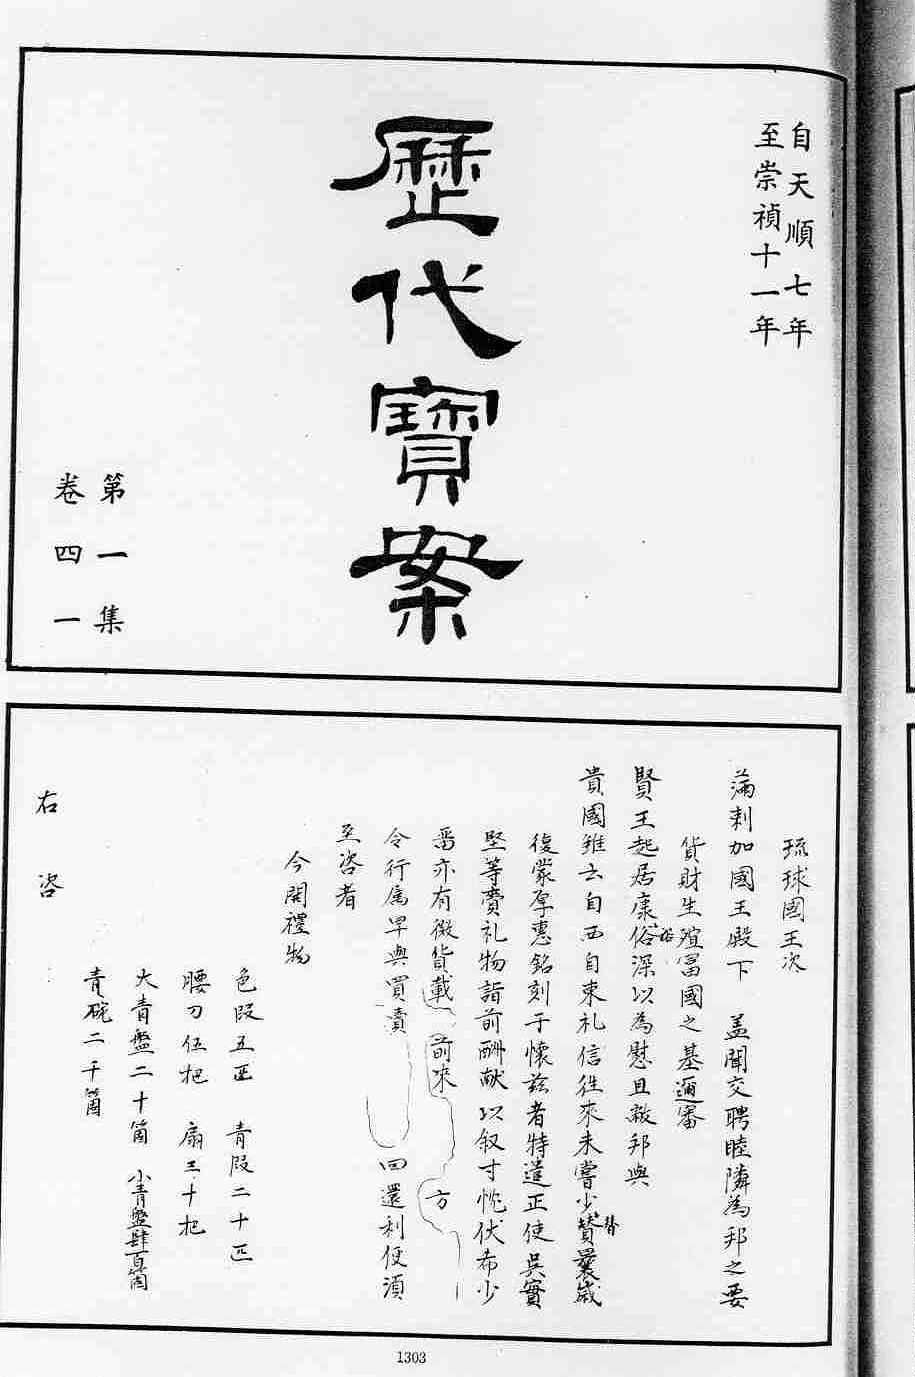 自天順七年
至崇禎十一年
歷代寶案
第一集
卷四一
琉球國王次
滿剌加國王殿下　蓋聞交聘睦隣為邦之要
貨財生殖冨國之基邇審
賢王起居康俗深以為慰且敝邦與
裕
貴國雖云自西自東礼信徃來未嘗少贊曩歲
替
復蒙厚惠銘刻于懷茲者特遣正使吳實
堅等賷礼物詣前酬献以叙寸忱伏希少
畱亦有微貨載　前來　方
令行属早與買賣　囬還利便湏
至咨者
今開禮物
色叚五匹　青叚二十匹
腰刀伍把　扇三十把
大青盤二十箇　小青盤肆百箇
青碗二千箇
右咨
1303